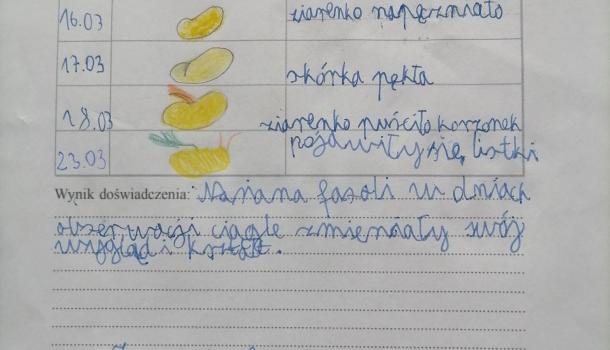 16.03 ziarenko napęczniało
17.03 skórka pękła
18.03 ziarenko puściło korzonek
23.03 pojawiły się listki
Wynik doświadczenia: Nasiona fasoli w dniach
obserwacji ciągle zmieniały swój
wygląd i kształt.